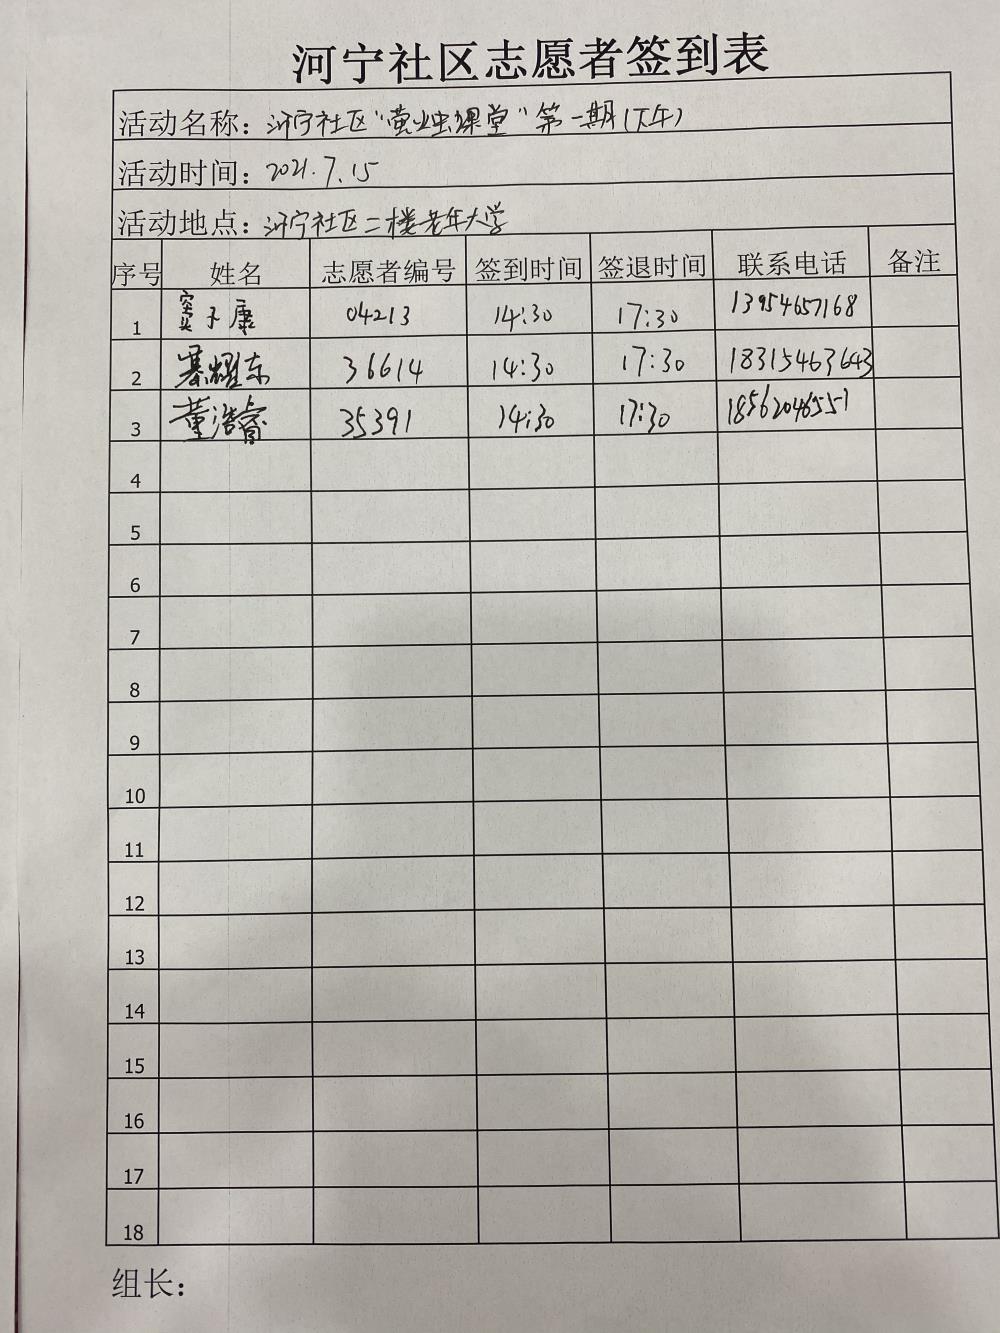 河宁社区志愿者签到表
活动名称：河宁社区"萤火虫课堂"第一期(下午)
活动时间：2021.7.15
活动地点：河宁社区二楼老年大学
序号 姓名 志愿者编号 签到时间 签退时间 联系电话 备注
1 窦子康 04213 14:30 17:30 13954657168
2 綦耀东 36614 14:30 17:30 18315463643
3 董浩睿 35391 14:30 17:30 18562046557
4
5
6
7
8
9
10
11
12
13
14
15
16
17
18
组长：